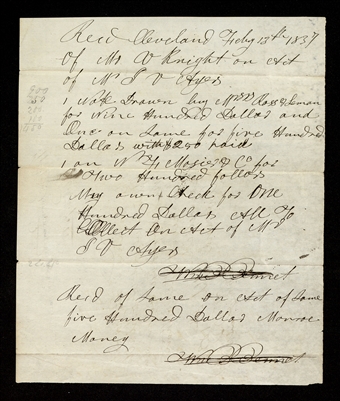 Rec'd Cleveland Feby 13th 1837
Of Mr V Knight on Act
of Mr S V Ayers
1 Note Drawn by Ross &
for Nine Hundred Dollars and
One on Same for five Hundred
Dollars with $250 paid
1 on Wm H Mosier & Co for
Two Hundred Dollars
My own Check for One
Hundred Dollars All To
Collect On Act of Mr
S V Ayers
Rec'd of Same on Act of Same
five Hundred Dollars Monroe
Money